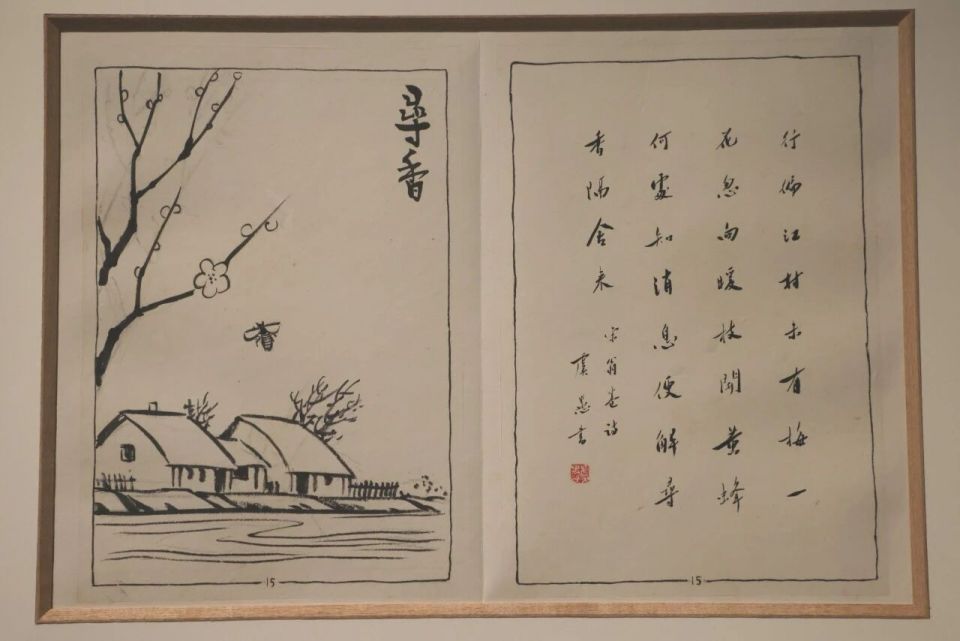 尋香
15
行徧江村未有梅一
花忽向暖枝開黃蜂
何處知消息便解尋
香隔舍來
宋翁卷詩
虞愚書
15